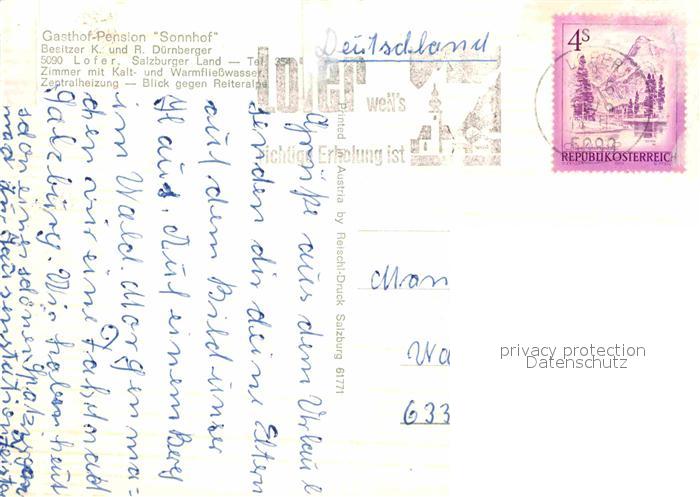 Gasthof-Pension "Sonnhof"
Besitzer K. und R. Dürnberger
5090 Lofer, Salzburger Land — Tel.
Zimmer mit Kalt- und Warmfließwasser,
Zentralheizung — Blick gegen Reiteralpe
Deutschland
Lofer
weil's
richtige Erholung ist
4S
REPUBLIK ÖSTERREICH
Printed in Austria by Reischl-Druck Salzburg 61771
Grüße aus dem Urlaub
senden dir deine Eltern
auf dem Bild unser
Haus. Auf einem Berg
im Wald. Morgen ma=
chen wir eine Fahrt nach
Salzburg. Wir haben heut
schon einen schönen Spaziergang
Man
Wa
633
privacy protection
Datenschutz